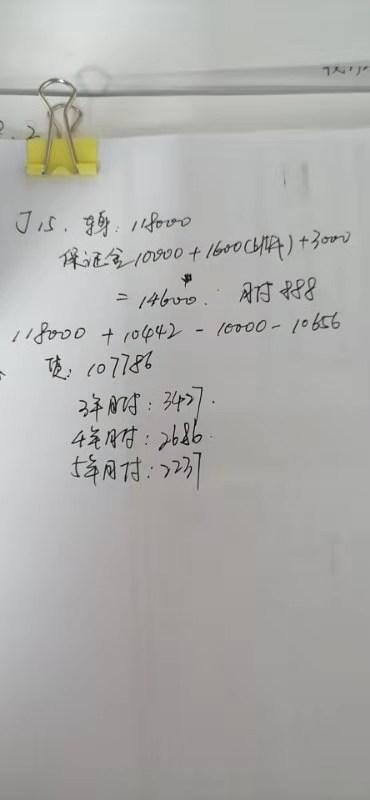 J15. 车: 118000
保证金10000 + 1600() + 3000
= 14600. 月付 888
118000 + 10442 - 10000 - 10656
贷: 107786
3年月付: 3427.
4年月付: 2686.
5年月付: 2237